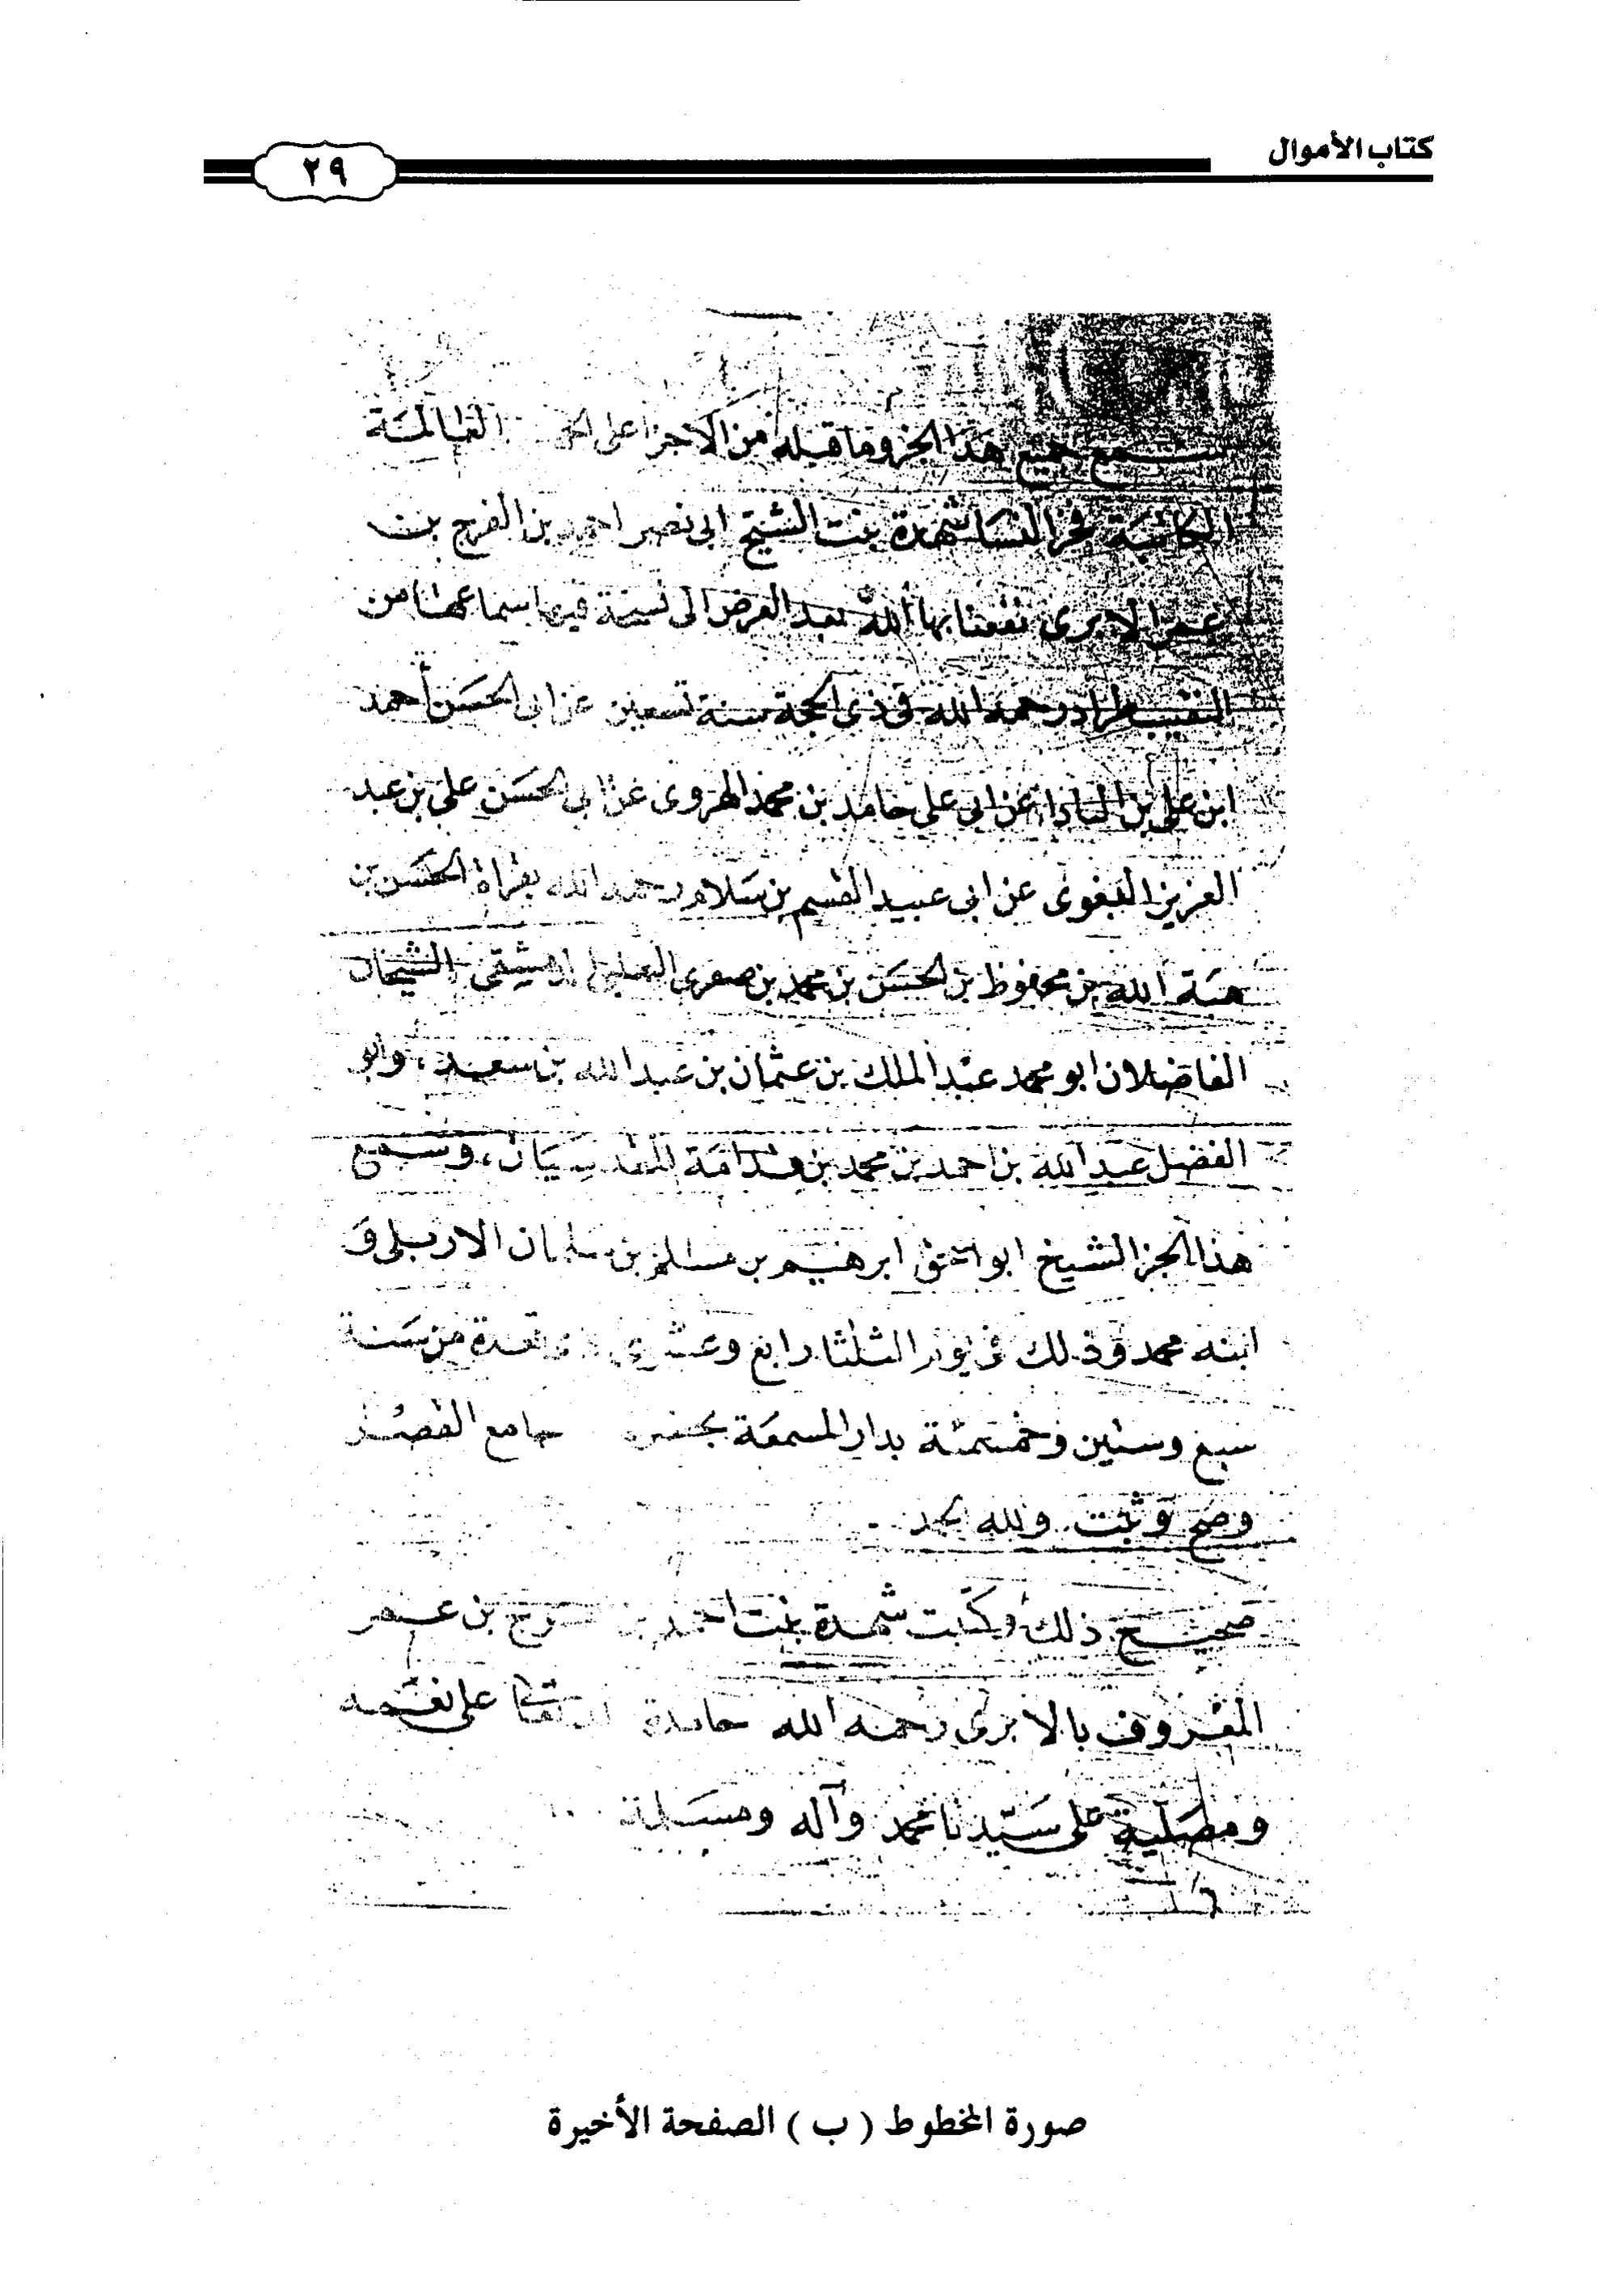 كتاب الأموال
٢٩
سمع جميع هذا الجزو وما قبله من الاجزا على العالمة
الكاتبة فخر النسا شهدة بنت الشيخ ابى نصر احمد بن الفرج بن
عمر الابرى نفعنا بها الله بعد العرض الى نسخة فيها سماعها من
النقيب طراد رحمه الله فى ذى الحجة سنة تسعين عن ابى الحسن أحمد
ابن على بن الباذا عن ابى على حامد بن محمد الهروى عن ابى الحسن على بن عبد
العزيز البغوى عن ابى عبيد القسم بن سلام رحمه الله بقراة الحسن بن
هبة الله بن محفوظ بن الحسن بن محمد بن صصرى الدمشقى الشيخان
الفاضلان ابو محمد عبد الملك بن عثمان بن عبد الله بن سعيد، وابو
الفضل عبد الله بن احمد بن محمد بن قدامة المقدسيان، وسمع
هذا الجز الشيخ ابو اسحق ابرهيم بن مسلم بن سلمان الاربلى و
ابنه محمد وذلك فى يوم الثلثا رابع وعشرى قعدة من سنة
سبع وستين وخمسمئة بدار المسمعة جامع القصر
وصح وثبت ولله الحمد
صحيح ذلك وكتبت شهدة بنت احمد بن الفرج بن عمر
المعروف بالابرى رحمه الله حامدة لله تعالى على نعمه
ومصلية على سيدنا محمد وآله ومسلمة
صورة المخطوط ( ب ) الصفحة الأخيرة